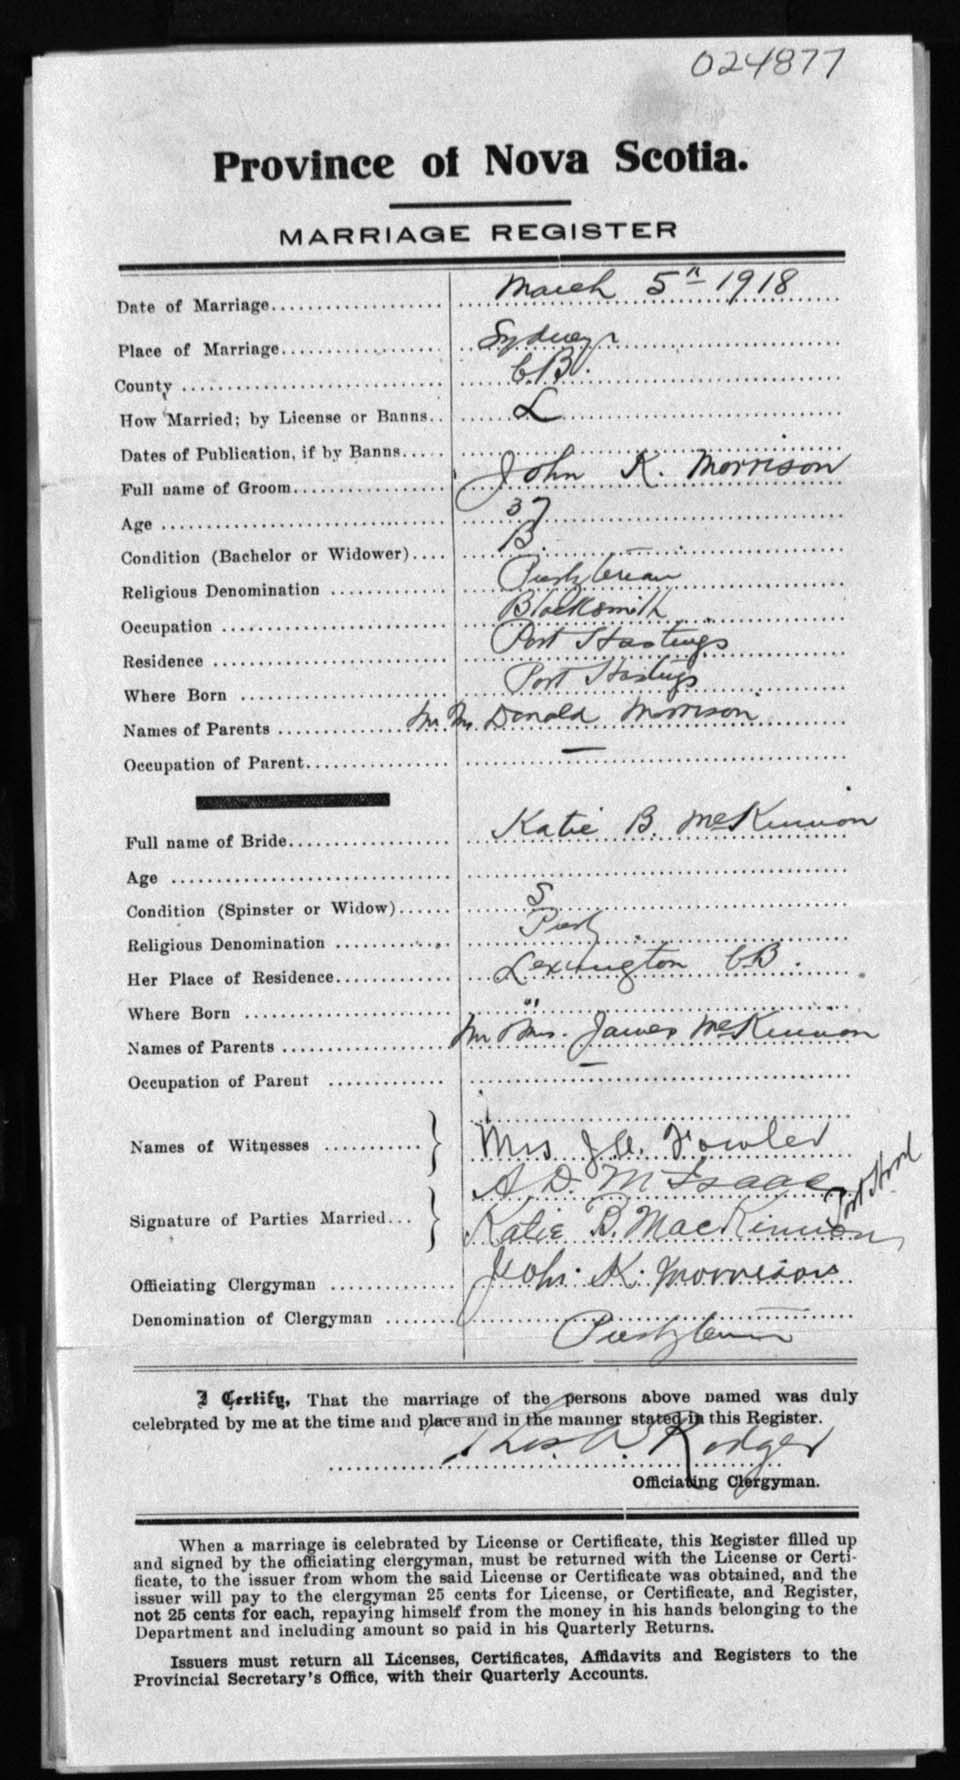 024877
Province of Nova Scotia.
MARRIAGE REGISTER
Date of Marriage March 5th 1918
Place of Marriage Sydney
County C.B.
How Married; by License or Banns L
Dates of Publication, if by Banns
Full name of Groom John K. Morrison
Age 37
Condition (Bachelor or Widower) B
Religious Denomination Presbyterian
Occupation Blacksmith
Residence Port Hastings
Where Born Port Hastings
Names of Parents Mr Mrs Donald Morrison
Occupation of Parent —
Full name of Bride Katie B. McKinnon
Age
Condition (Spinster or Widow) S
Religious Denomination Presby
Her Place of Residence Lexington C.B.
Where Born "
Names of Parents Mr Mrs. James McKinnon
Occupation of Parent —
Names of Witnesses Mrs J. Fowler
A. D. McIsaac Port Hood
Signature of Parties Married Katie B. MacKinnon
Officiating Clergyman John K. Morrison
Denomination of Clergyman Presbyterian
I Certify, That the marriage of the persons above named was duly
celebrated by me at the time and place and in the manner stated in this Register.
Thos. A. Rodger
Officiating Clergyman.
When a marriage is celebrated by License or Certificate, this Register filled up
and signed by the officiating clergyman, must be returned with the License or Certi-
ficate, to the issuer from whom the said License or Certificate was obtained, and the
issuer will pay to the clergyman 25 cents for License, or Certificate, and Register,
not 25 cents for each, repaying himself from the money in his hands belonging to the
Department and including amount so paid in his Quarterly Returns.
Issuers must return all Licenses, Certificates, Affidavits and Registers to the
Provincial Secretary's Office, with their Quarterly Accounts.